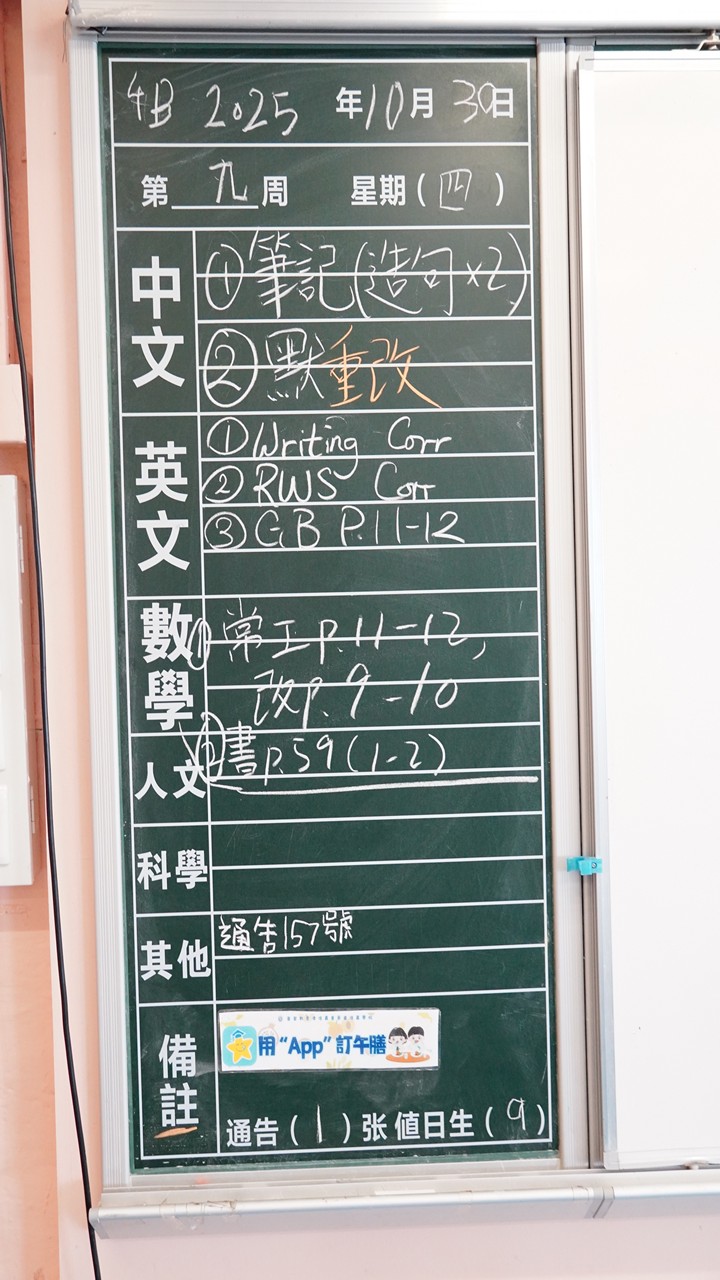 4B 2025 年10月30日
第 九 周 星期(四)
中文
①筆記(造句×2)
②默重改
英文
① Writing Corr
② RWS Corr
③ GB P.11-12
數學
①常工p.11-12,
改p.9-10
②書p.59(1-2)
人文
科學
其他
通告157號
備註
用“App”訂午膳
通告(1)张 值日生(9)